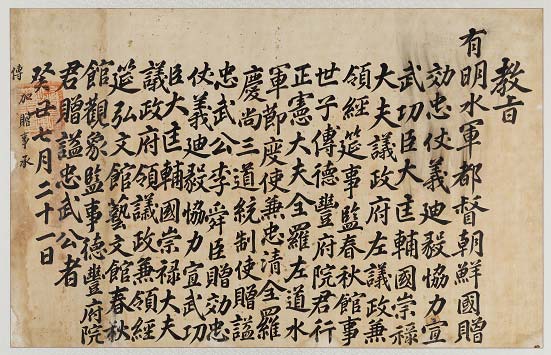 教旨
有明水軍都督朝鮮國贈
効忠仗義迪毅協力宣
武功臣大匡輔國崇禄
大夫議政府左議政兼
領經筵事監春秋館事
世子傅德豐府院君行
正憲大夫全羅左道水
軍節度使兼忠清全羅
慶尚三道統制使贈謚
忠武公李舜臣贈効忠
仗義迪毅協力宣武功
臣大匡輔國崇禄大夫
議政府領議政兼領經
筵弘文館藝文館春秋
館觀象監事德豐府院
君贈謚忠武公者
癸丑七月二十一日
加贈事承
傳